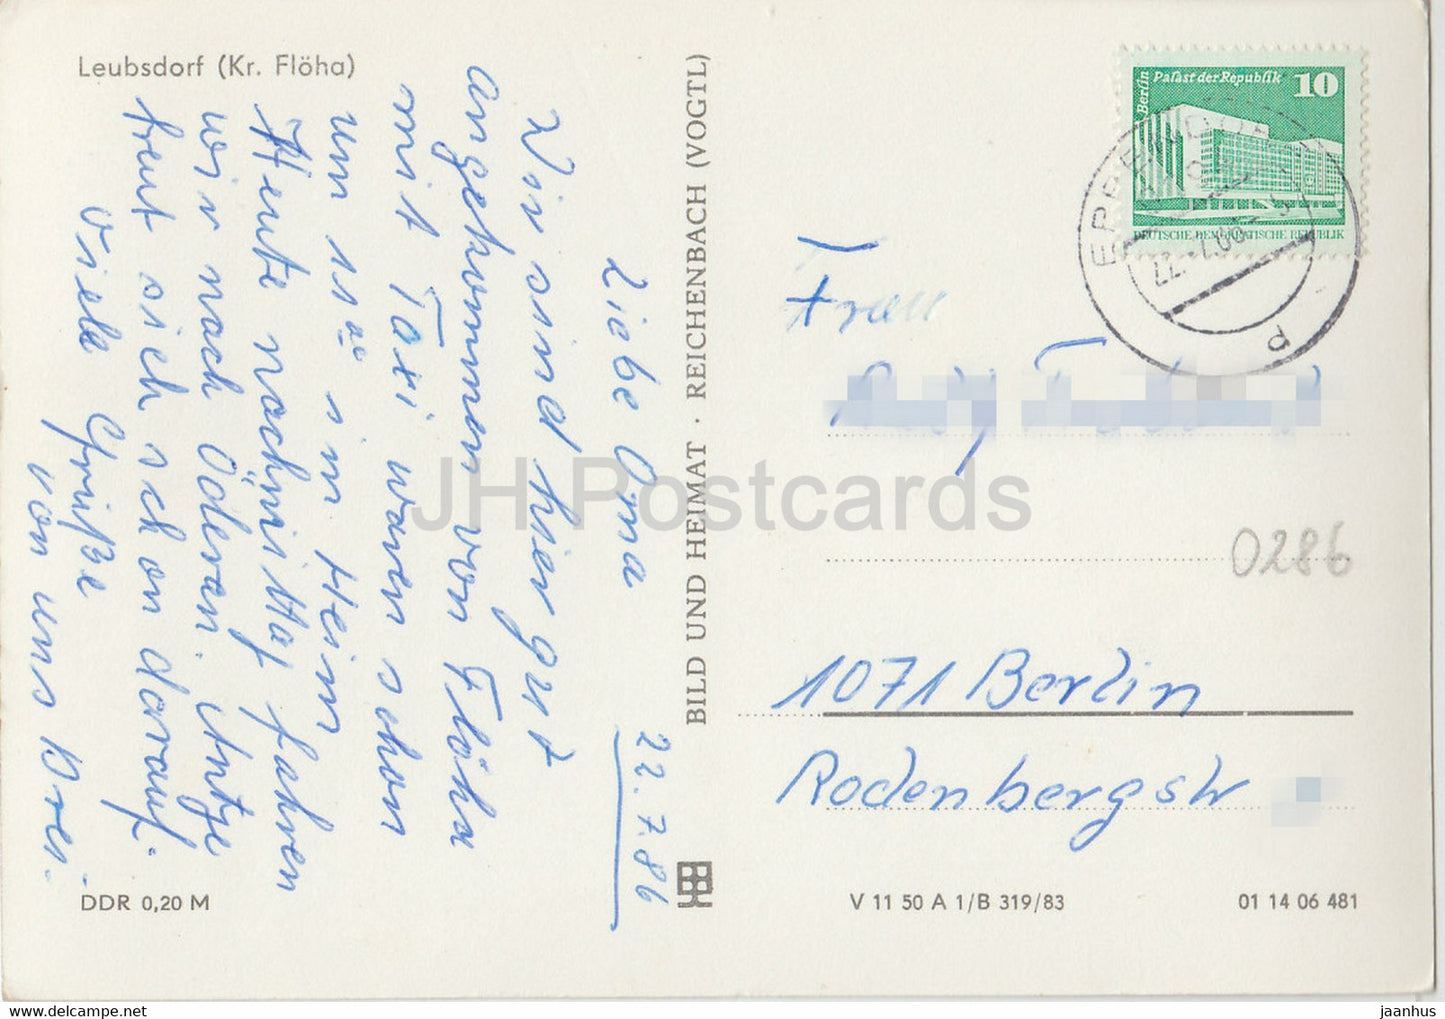 Leubsdorf (Kr. Flöha)
22.7.86
Liebe Oma
Wir sind hier gut
angekommen von Flöha
mit Taxi waren schon
um 15°° im Heim
Heute nachmittag fahren
wir nach Öderan. Antje
freut sich schon darauf.
Viele Grüße
von uns Drei.
DDR 0,20 M
BILD UND HEIMAT · REICHENBACH (VOGTL)
Berlin Palast der Republik 10
DEUTSCHE DEMOKRATISCHE REPUBLIK
EPPENDORF
22.-7.86
Frau
0286
1071 Berlin
Rodenbergstr
V 11 50 A 1/B 319/83
01 14 06 481
JH Postcards
https://www.delcampe.net
jaanhus